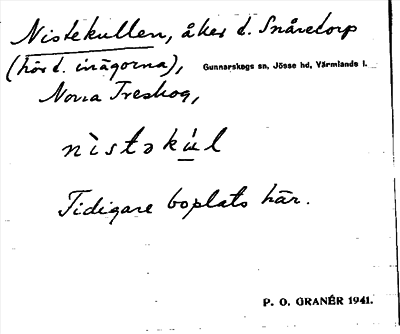 Nistekullen, åker d. Snåretorp
(hör d. inägorna), Gunnarskogs sn, Jösse hd, Värmlands l.
Norra Treskog,
nìstəkúl
Tidigare boplats här.
P. O. GRANÉR 1941.